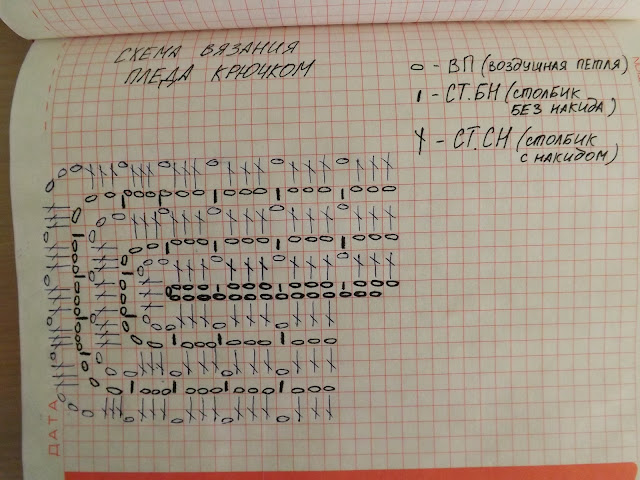 СХЕМА ВЯЗАНИЯ
ПЛЕДА КРЮЧКОМ
о - ВП (ВОЗДУШНАЯ ПЕТЛЯ)
ı - СТ.БН (СТОЛБИК
БЕЗ НАКИДА)
Ɏ - СТ.СН (СТОЛБИК
С НАКИДОМ)
ДАТА